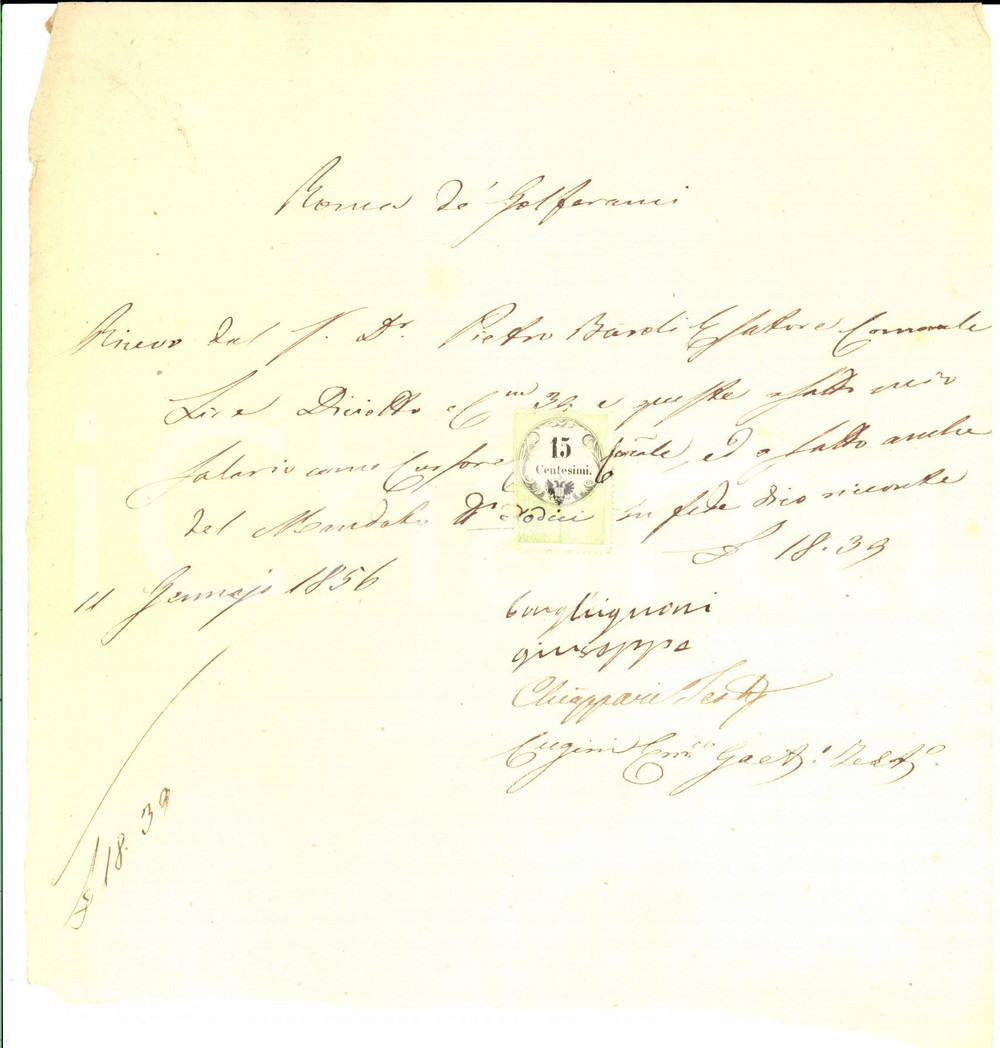 Ronca de' Golferami
Ricevo dal S. Dr. Pietro Bardi Esatore Comunale
Lire Diciotto e Cmi 39, e queste a saldo mio
salario come Cursore Comunale, ed a saldo anche
del Mandato N. dodici In fede dico ricevute
£ 18.39
15
Centesimi.
11 Gennajo 1856
borghignoni
giuseppe
Chiappari Test
Cugini Gaet. Testo.
£ 18.39